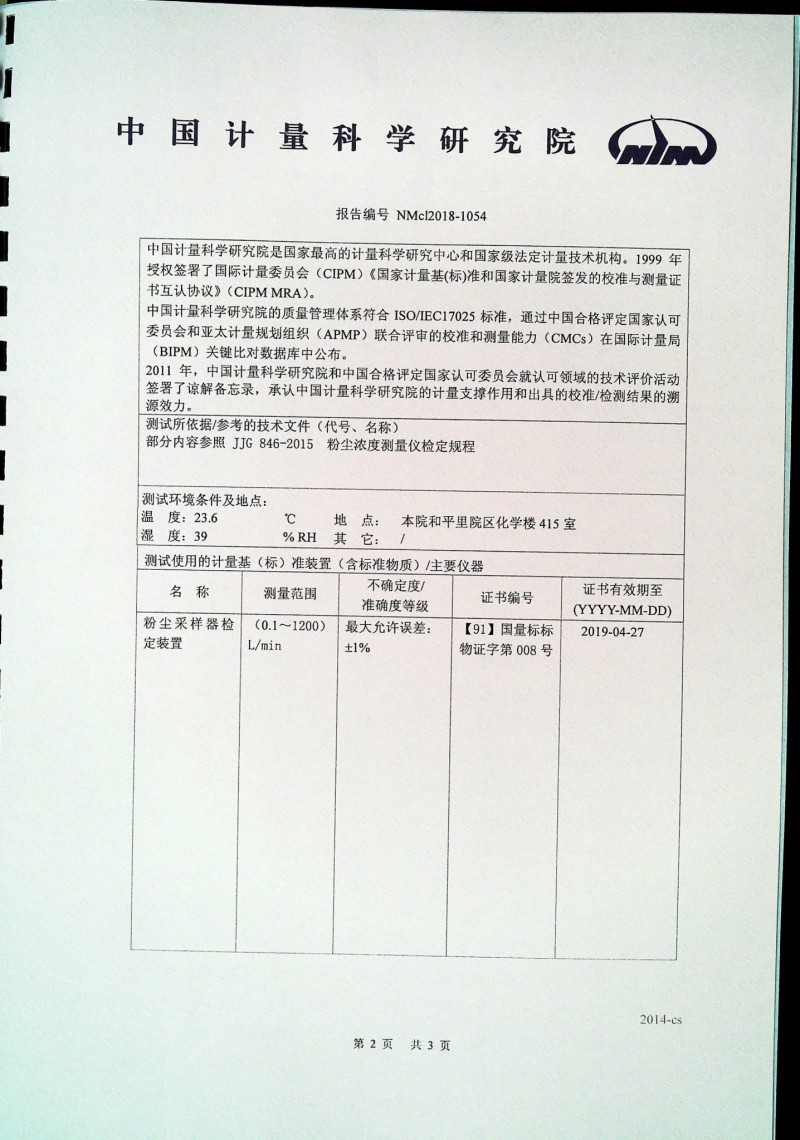 中国计量科学研究院 NIM
报告编号 NMcl2018-1054
中国计量科学研究院是国家最高的计量科学研究中心和国家级法定计量技术机构。1999 年
授权签署了国际计量委员会（CIPM）《国家计量基(标)准和国家计量院签发的校准与测量证
书互认协议》（CIPM MRA）。
中国计量科学研究院的质量管理体系符合 ISO/IEC17025 标准，通过中国合格评定国家认可
委员会和亚太计量规划组织（APMP）联合评审的校准和测量能力（CMCs）在国际计量局
（BIPM）关键比对数据库中公布。
2011 年，中国计量科学研究院和中国合格评定国家认可委员会就认可领域的技术评价活动
签署了谅解备忘录，承认中国计量科学研究院的计量支撑作用和出具的校准/检测结果的溯
源效力。
测试所依据/参考的技术文件（代号、名称）
部分内容参照 JJG 846-2015 粉尘浓度测量仪检定规程
测试环境条件及地点：
温 度：23.6 ℃ 地 点： 本院和平里院区化学楼 415 室
湿 度：39 % RH 其 它： /
测试使用的计量基（标）准装置（含标准物质）/主要仪器
名 称 测量范围 不确定度/ 证书编号 证书有效期至
准确度等级 (YYYY-MM-DD)
粉尘采样器检 （0.1～1200） 最大允许误差： 【91】国量标标 2019-04-27
定装置 L/min ±1% 物证字第 008 号
2014-cs
第 2 页 共 3 页